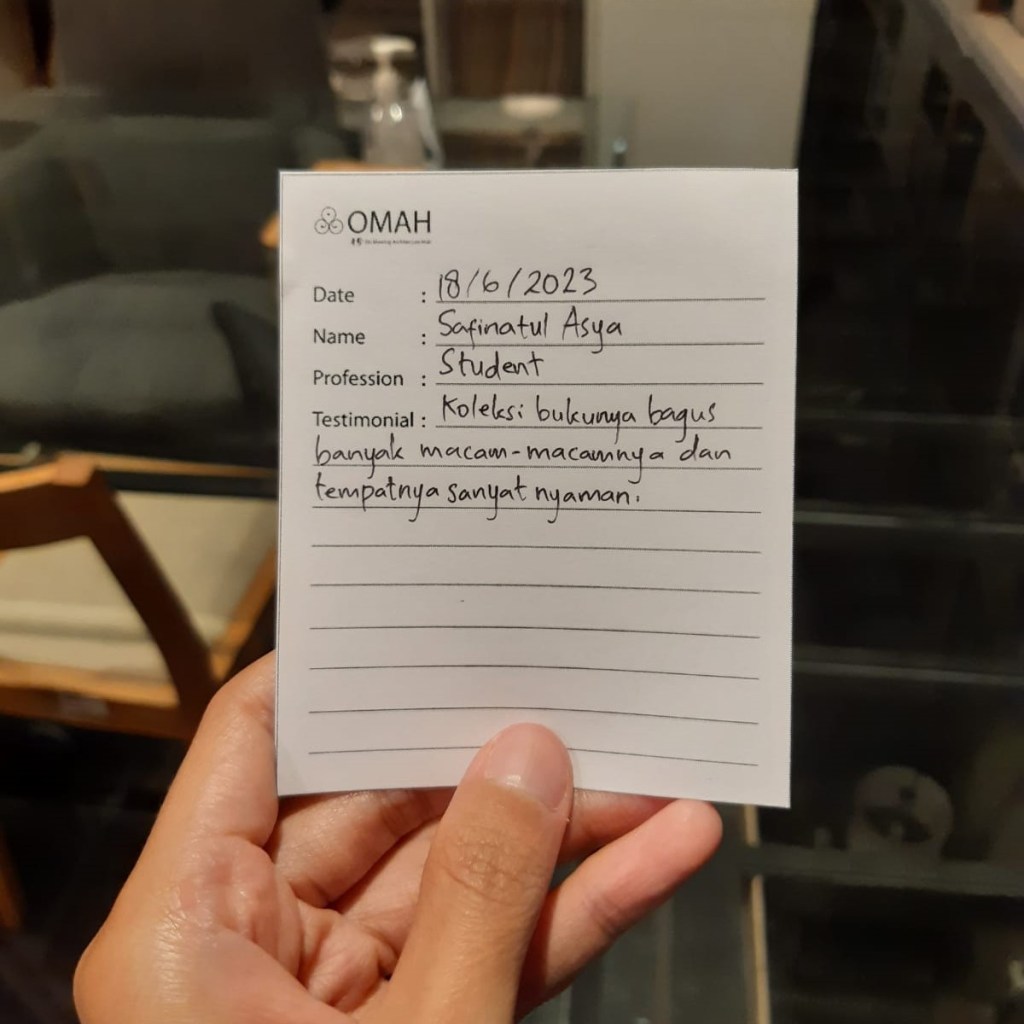 OMAH
Date : 18/6/2023
Name : Safinatul Asya
Profession : Student
Testimonial : Koleksi bukunya bagus
banyak macam-macamnya dan
tempatnya sanyat nyaman.